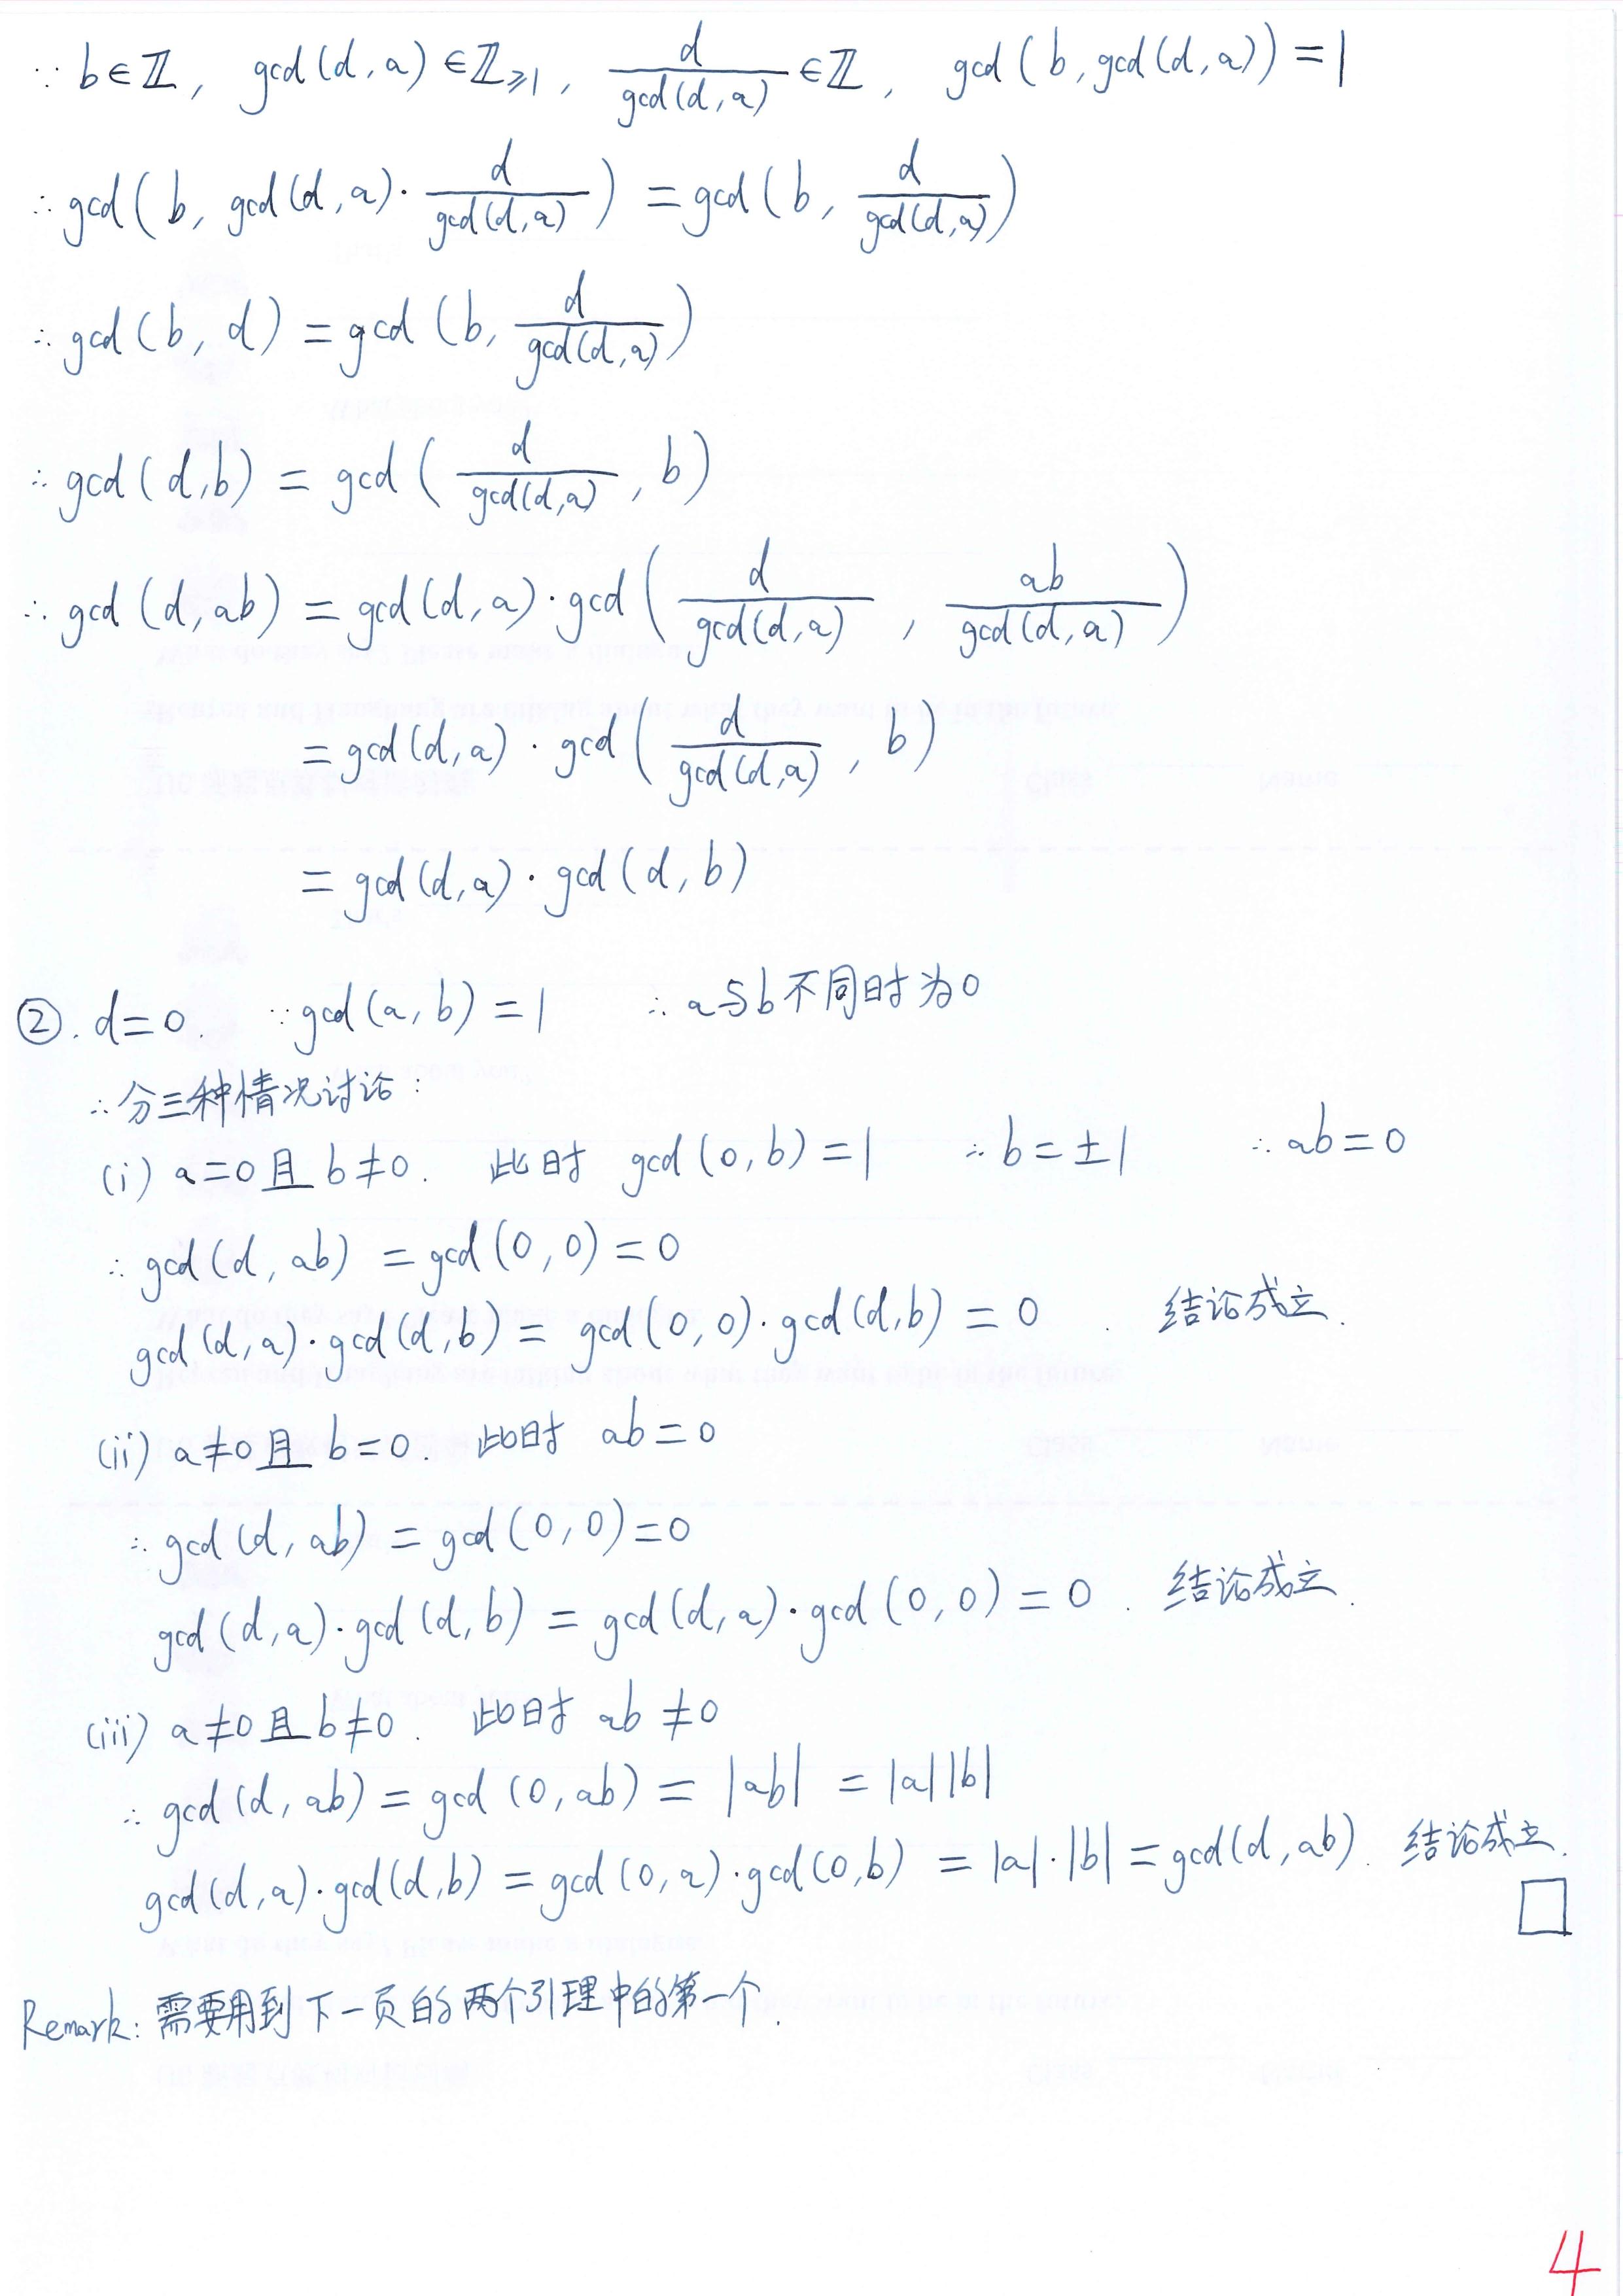 ∵ b∈ℤ, gcd(d,a)∈ℤ≥1, d/gcd(d,a) ∈ℤ, gcd(b,gcd(d,a))=1
∴ gcd(b, gcd(d,a)·d/gcd(d,a)) = gcd(b, d/gcd(d,a))
∴ gcd(b, d) = gcd(b, d/gcd(d,a))
∴ gcd(d,b) = gcd(d/gcd(d,a), b)
∴ gcd(d,ab) = gcd(d,a)·gcd(d/gcd(d,a), ab/gcd(d,a))
= gcd(d,a)·gcd(d/gcd(d,a), b)
= gcd(d,a)·gcd(d,b)
②. d=0. ∵gcd(a,b)=1 ∴a与b不同时为0
∴分三种情况讨论:
(i) a=0且b≠0. 此时 gcd(0,b)=1 ∴b=±1 ∴ab=0
∴ gcd(d,ab) = gcd(0,0)=0
gcd(d,a)·gcd(d,b) = gcd(0,0)·gcd(d,b) = 0. 结论成立.
(ii) a≠0且b=0. 此时 ab=0
∴ gcd(d,ab) = gcd(0,0)=0
gcd(d,a)·gcd(d,b) = gcd(d,a)·gcd(0,0) = 0. 结论成立.
(iii) a≠0且b≠0. 此时 ab≠0
∴ gcd(d,ab) = gcd(0,ab) = |ab| = |a||b|
gcd(d,a)·gcd(d,b) = gcd(0,a)·gcd(0,b) = |a|·|b| = gcd(d,ab). 结论成立.
□
Remark: 需要用到下一页的两个引理中的第一个.
4